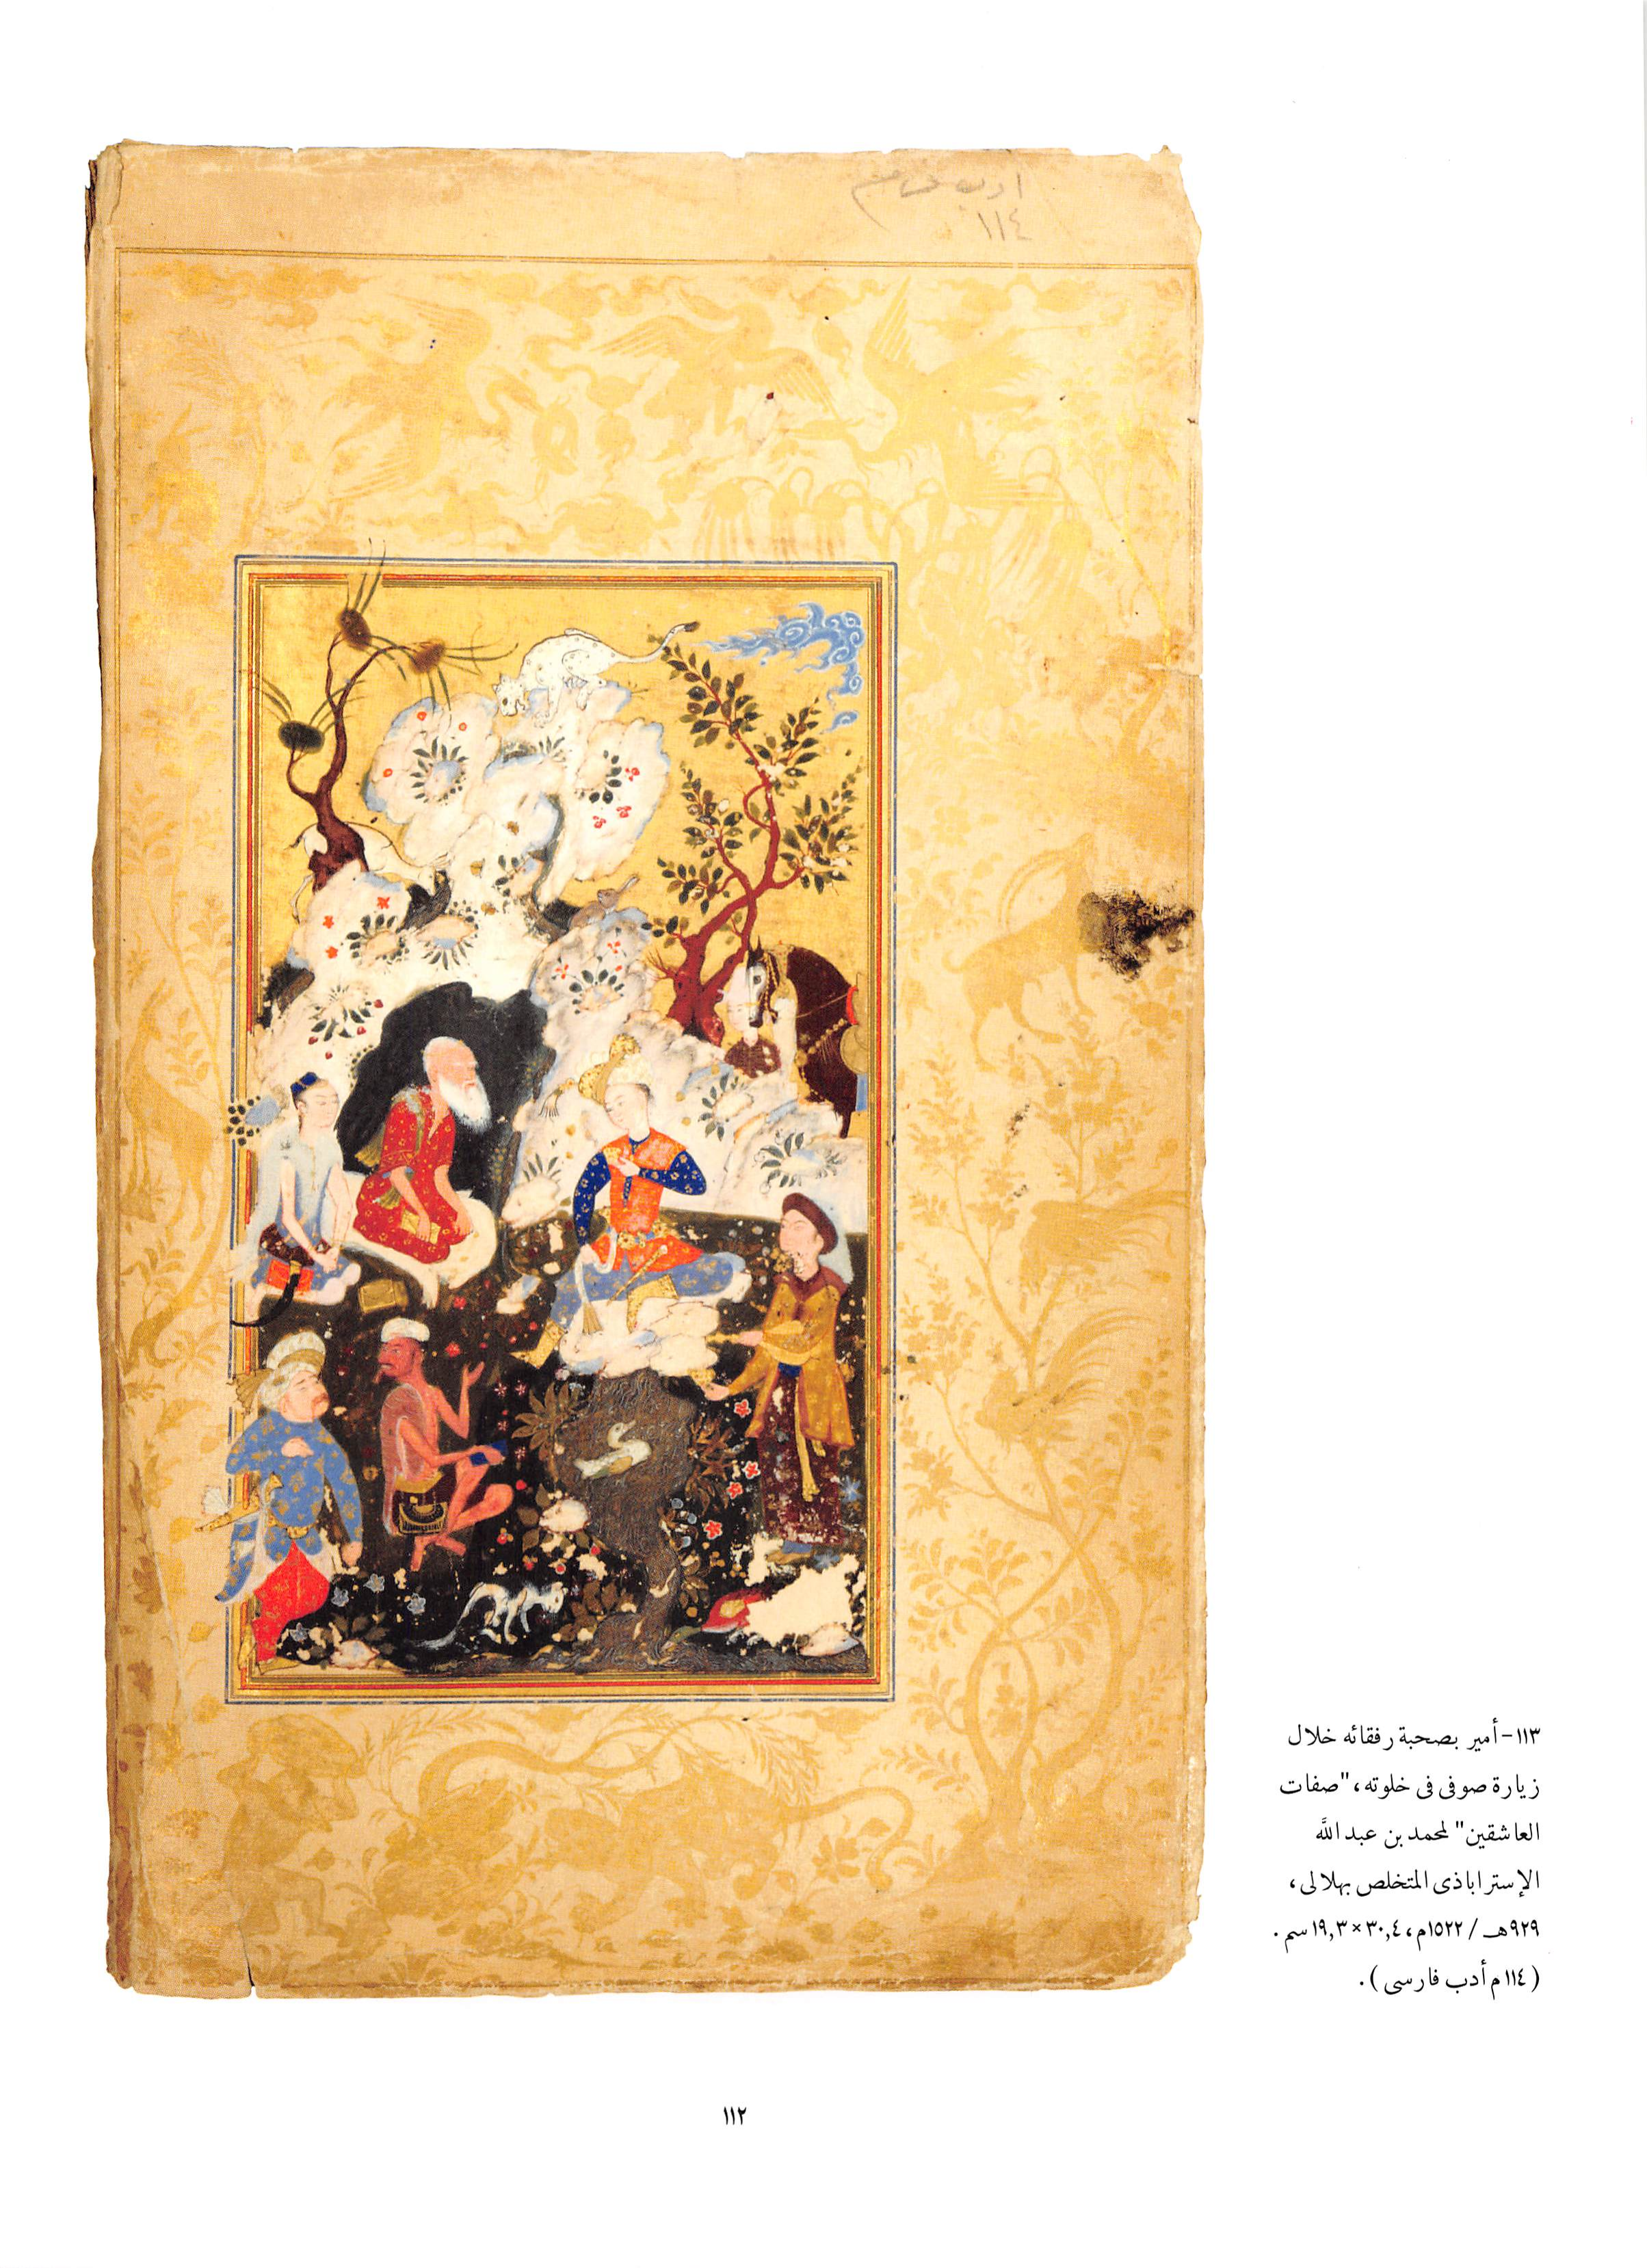 ادب فارسی م
١١٤
١١٣-أمير بصحبة رفقائه خلال
زيارة صوفى فى خلوته، "صفات
العاشقين" لمحمد بن عبد الله
الإستراباذى المتخلص بهلالى،
٩٢٩هـ / ١٥٢٢م، ٣٠,٤ × ١٩,٣ سم.
(١١٤ م أدب فارسى).
١١٢